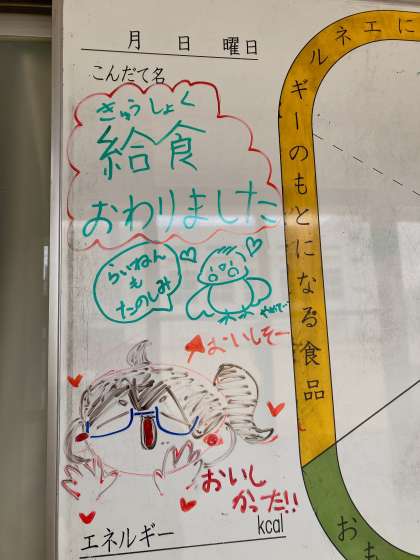 月 日 曜日
こんだて名
きゅうしょく
給食
おわりました
らいねん
も
たのしみ
おいしそー
おいし
かった!!
エネルギー kcal
エネルギーのもとになる食品
おも